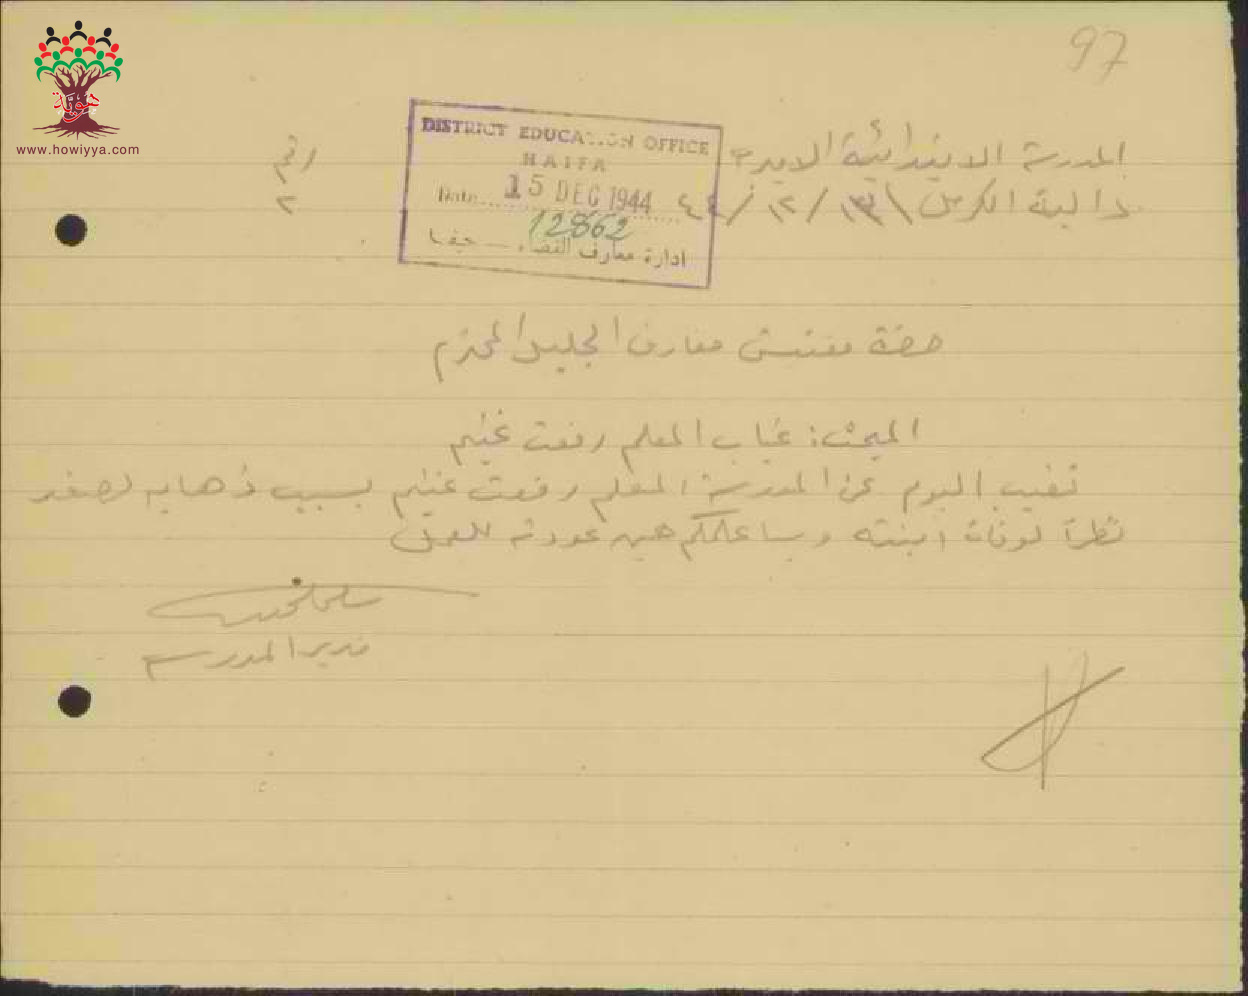 97
هوية
www.howiyya.com
المدرسة الابتدائية الاميرية
رقم
دالية الكرمل ١٣/١٢/٤٤
٢
DISTRICT EDUCATION OFFICE
HAIFA
Date 15 DEC 1944
12862
ادارة معارف القضاء — حيفا
حضرة مفتش معارف الجليل المحترم
المبحث: غياب المعلم رفعت غنيم
تغيب اليوم عن المدرسة المعلم رفعت غنيم بسبب ذهابه لصفد
نظراً لوفاة ابنته وساعلمكم حين عودته للعمل
مدير المدرسة